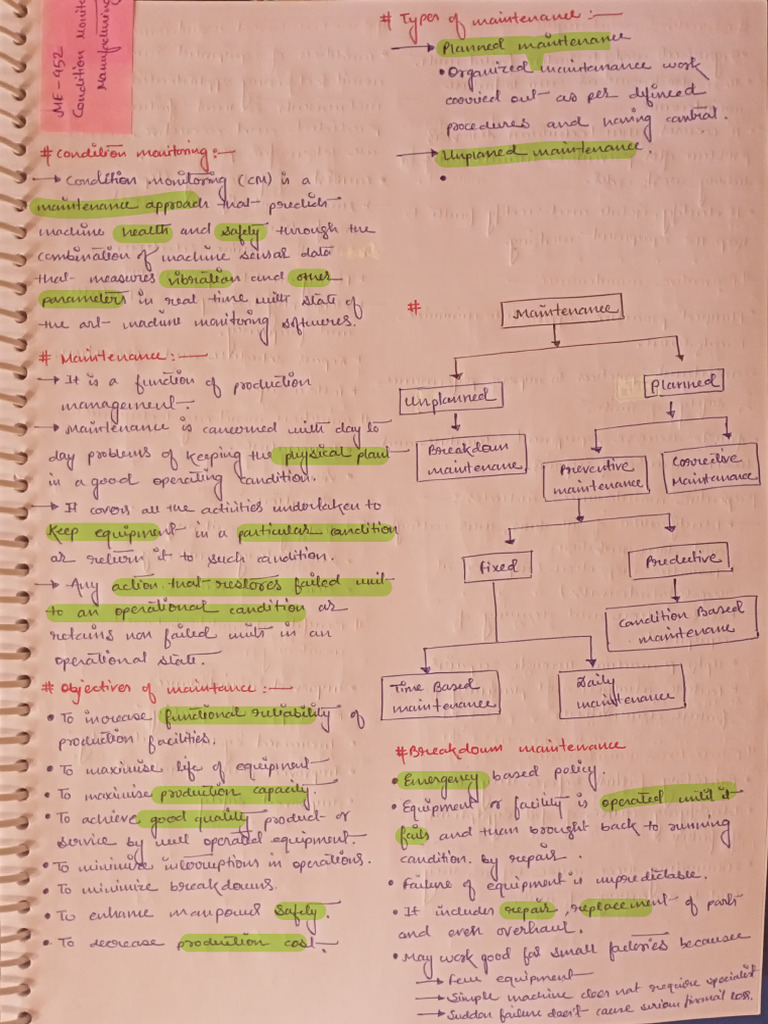 ME-452
Condition Monito
Manufacturing
# Condition monitoring:-
→ Condition Monitoring (CM) is a
maintenance approach that predicts
machine health and safety through the
combination of machine sensor data
that measures vibration and other
parameters in real time with state of
the art machine monitoring softweres.
# Maintenance:-
→ It is a function of production
management.
→ Maintenance is concerned with day to
day problems of keeping the physical plant
in a good operating condition.
→ It covers all the activities undertaken to
keep equipment in a particular condition
or return it to such condition.
→ Any action that restores failed unit
to an operational condition or
retains non failed units in an
operational state.
# Objectives of maintance:-
• To increase functional reliability of
production facilities.
• To maximise life of equipment
• To maximise production capacity.
• To achieve good quality product or
service by well operated equipment.
• To minimise interruptions in operations.
• To minimize breakdowns.
• To enhance manpower safety.
• To decrease production cost.
# Types of maintenance:-
→ Planned maintenance
• Organized maintenance work
carried out as per defined
procedures and having control.
→ Unplaned maintenance.
•
#
Maintenance
Unplanned
Planned
Breakdown
maintenance
Preventive
maintenance
Corrective
Maintenance
Fixed
Predective
Condition Based
maintenance
Time Based
maintenance
Daily
maintenance
# Breakdown maintenance
• Emergency based policy.
• Equipment or facility is operated until it
fails and then brought back to running
condition by repair.
• Failure of equipment is unpredictable.
• It includes repair, replacement of parts
and even overhaul.
• May work good for small factories because
→ Few equipment
→ Simple machine does not require specialist
→ Sudden failure doesn't cause serious loss.